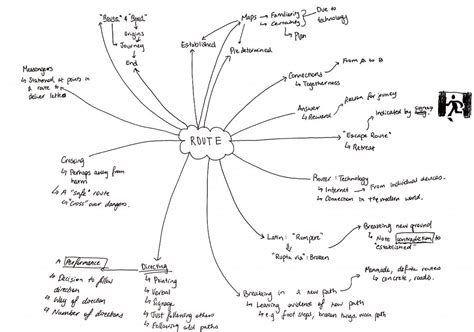 "Bouse" & "Bred"
Origins
↳ Journey
↳ End
Maps → Familiarity → Due to
↳ certainty technology
↳ Plan
Established
Predetermined
Messengers
↳ Stationed at points in
a route to
deliver letters
Connections → From A to B
↳ Togetherness
Answer → Reason for journey
↳ Reward
"Escape Route" → Indicated by
↳ Retreat
ROUTE
Crossing
↳ Perhaps away from
harm
↳ A "safe" route
↳ "Cross" over dangers.
Router: Technology
↳ Internet → From individual devices.
↳ Connection in the modern world.
Latin: "Rumpere" → Breaking new ground
↳ "Rupta via": Broken
↳ Note contradiction to
"established"
A Performance
↳ Decision to follow
direction
↳ Way of direction
↳ Number of directions
Directing
↳ Pointing
↳ Verbal
↳ Signage
↳ Just following others
↳ Following old paths
Breaking in a new path → Manmade, definite routes
↳ concrete, roads.
↳ Leaving evidence of new path
↳ e.g foot steps, broken twigs, new path